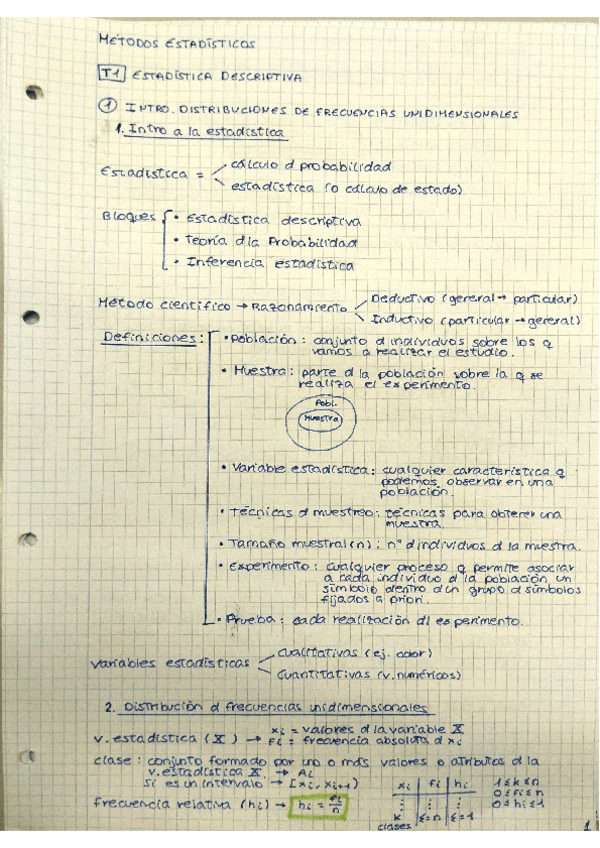 MÉTODOS ESTADÍSTICOS
T1 ESTADÍSTICA DESCRIPTIVA
① INTRO. DISTRIBUCIONES DE FRECUENCIAS UNIDIMENSIONALES
1. Intro a la estadística
Estadística = cálculo d probabilidad
estadística (o cálculo de estado)
Bloques
• Estadística descriptiva
• Teoría dla Probabilidad
• Inferencia estadística
Método científico → Razonamiento
Deductivo (general → particular)
Inductivo (particular → general)
Definiciones:
• Población: conjunto d individuos sobre los q
vamos a realizar el estudio.
• Muestra: parte d la población sobre la q se
realiza el experimento.
Pobl.
Muestra
• Variable estadística: cualquier característica q
podemos observar en una
población.
• Técnicas d muestreo: técnicas para obtener una
muestra.
• Tamaño muestral (n): nº d individuos d la muestra.
• Experimento: cualquier proceso q permite asociar
a cada individuo d la población un
símbolo dentro d un grupo d símbolos
fijados a priori.
• Prueba: cada realización dl experimento.
Variables estadísticas
Cualitativas (ej. color)
Cuantitativas (v. numéricos)
2. Distribución d frecuencias unidimensionales
v. estadística (X) → xi = valores d la variable X
fi = frecuencia absoluta d xi
clase: conjunto formado por uno o más valores o atributos d la
v. estadística X. → Ai
si es un intervalo → [xi, xi+1)
frecuencia relativa (hi) → hi = fi/n
xi fi hi
⋮ ⋮ ⋮
k Σ=n Σ=1
clases
1≤k≤n
0≤fi≤n
0≤hi≤1
1